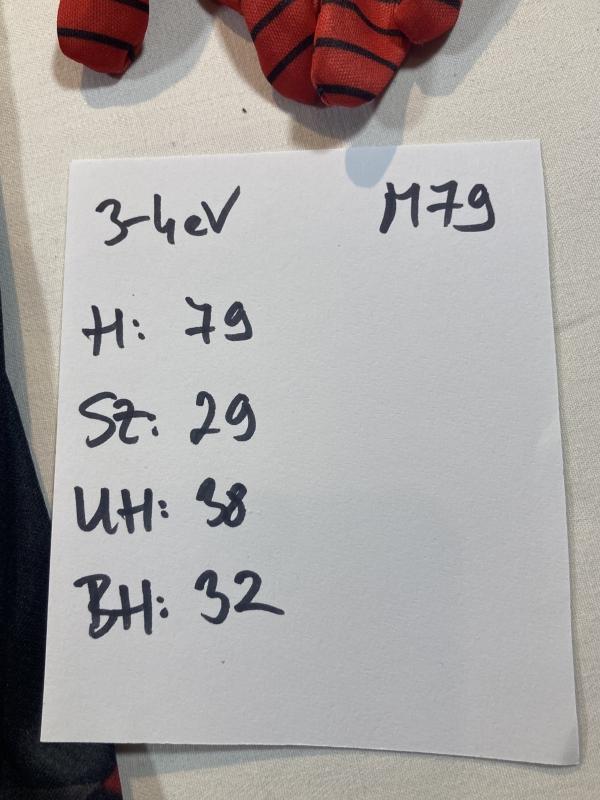 3-4eV M79
H: 79
SZ: 29
UH: 38
BH: 32